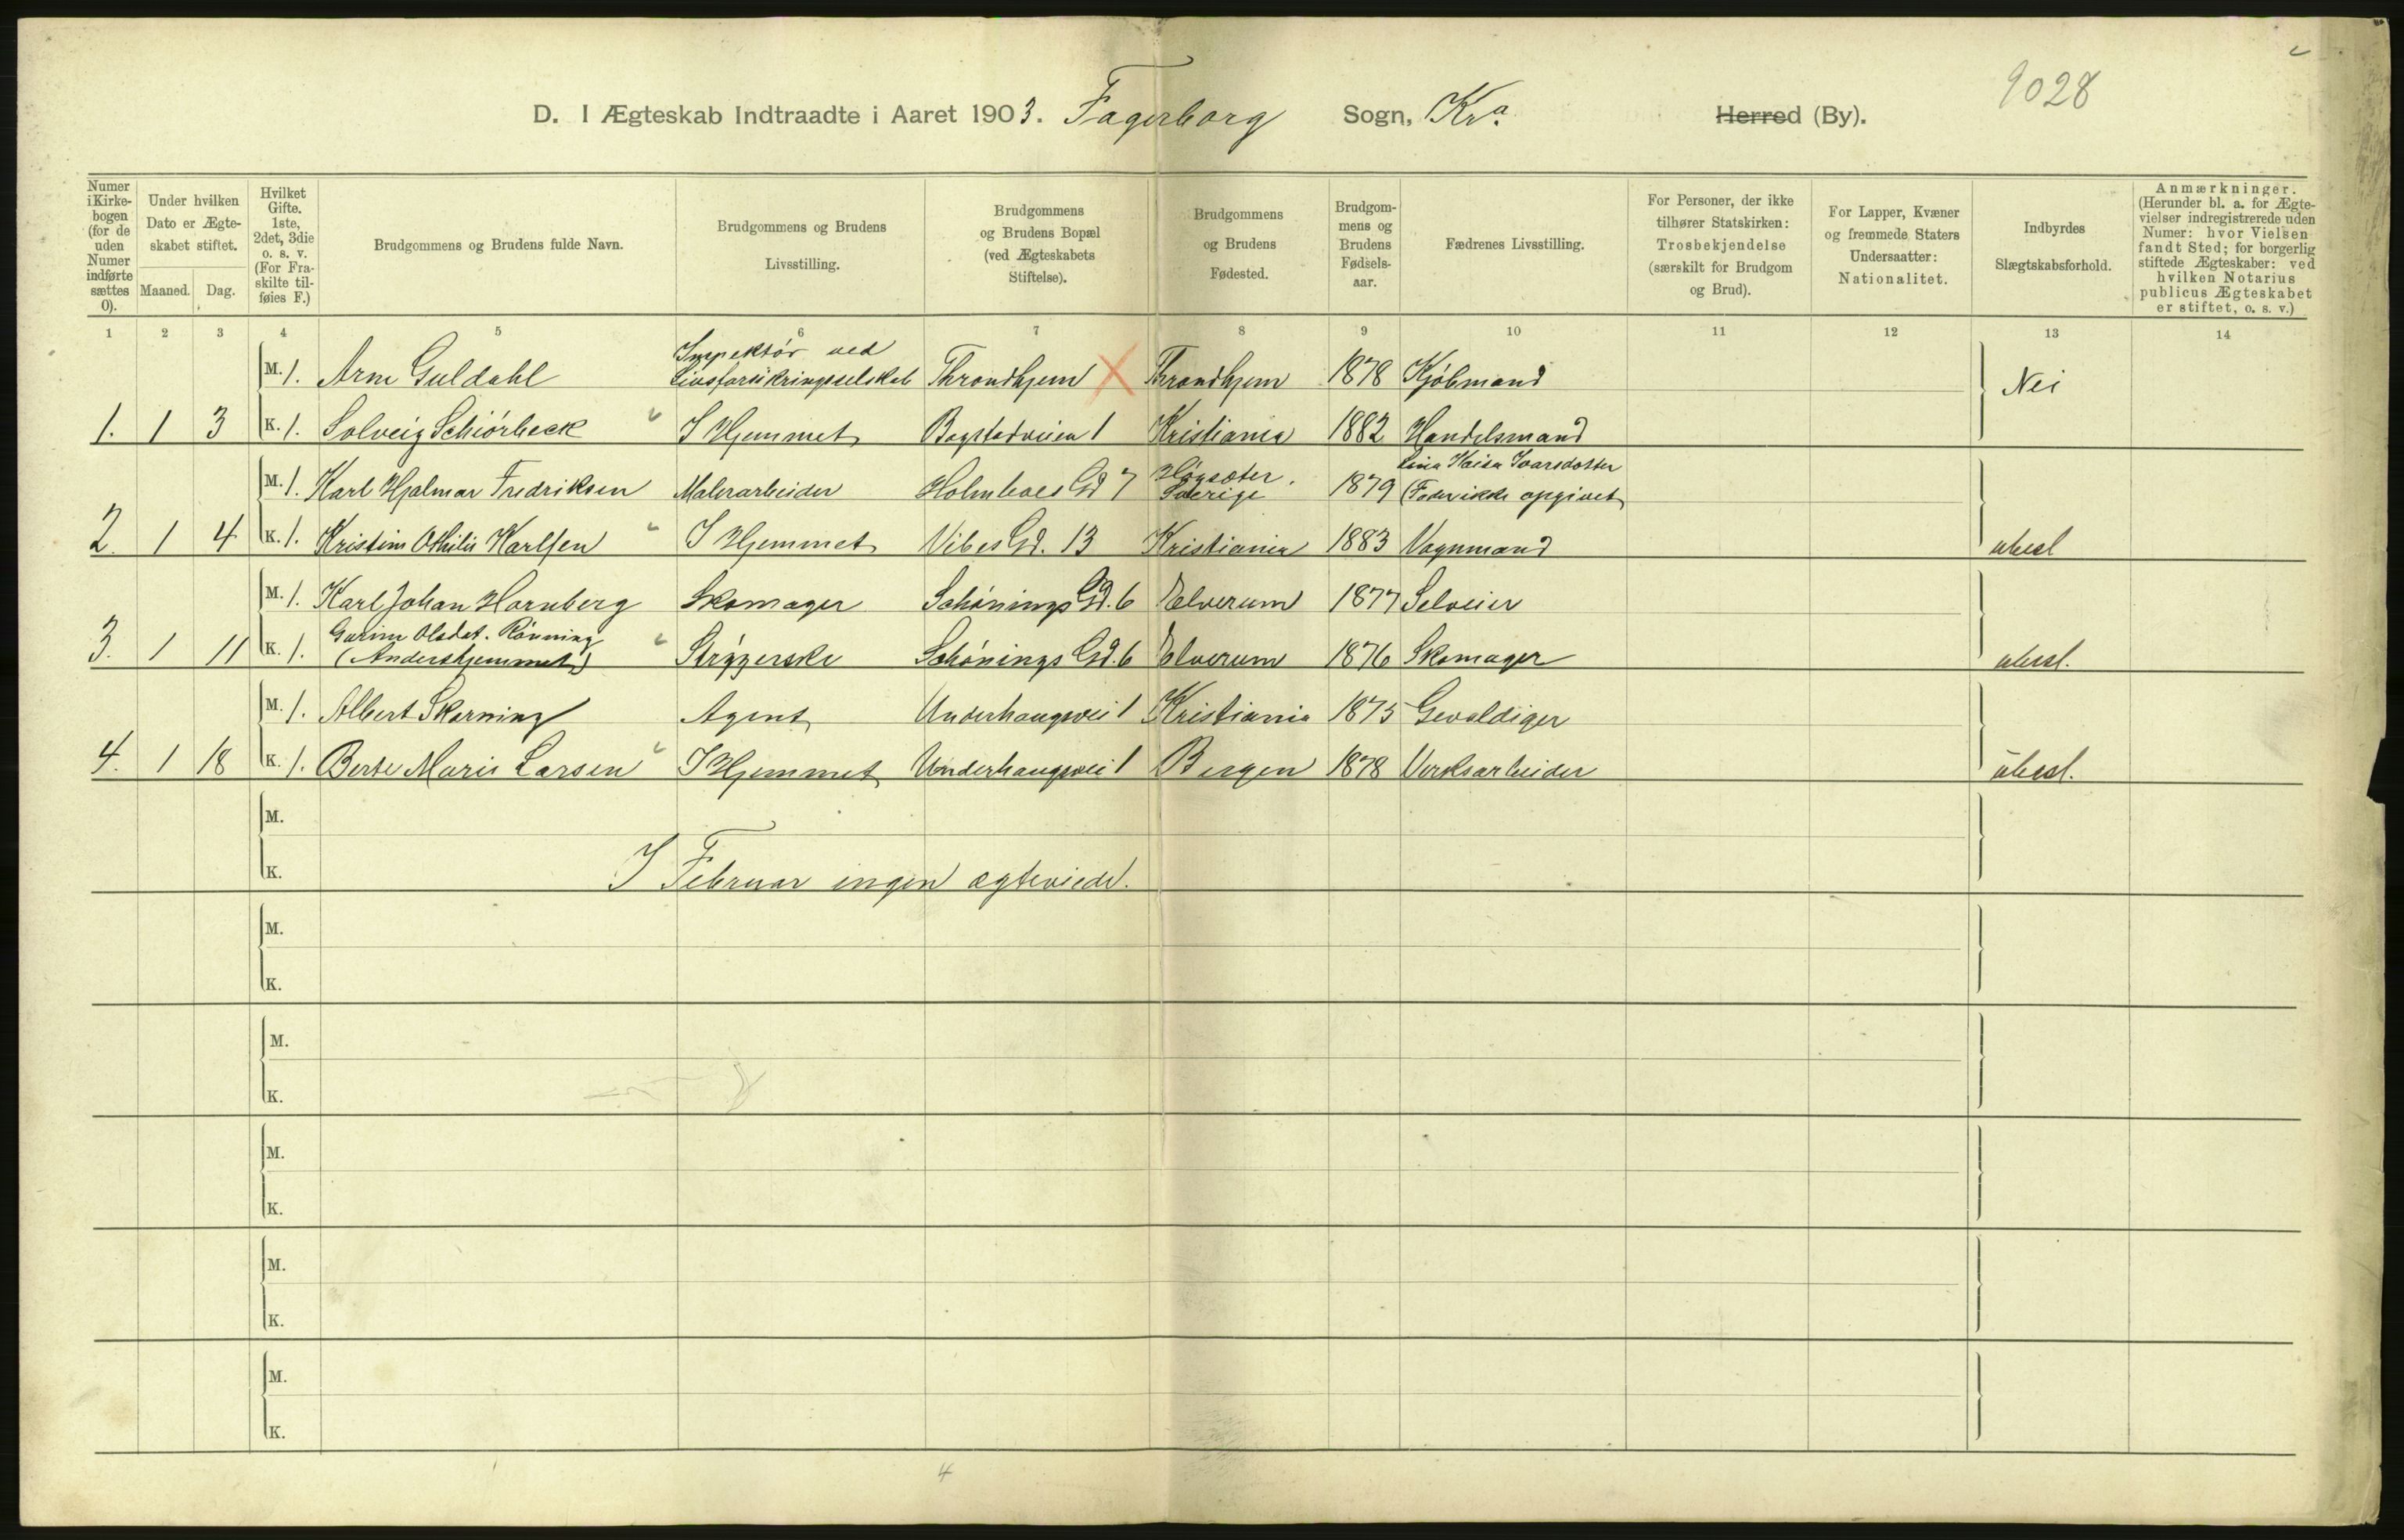 9028
D. I Ægteskab Indtraadte i Aaret 1903. Fagerborg Sogn, Kra. Herred (By).
Numer i Kirke-bogen (for de uden Numer indførte sættes 0). | Under hvilken Dato er Ægte-skabet stiftet. Maaned. Dag. | Hvilket Gifte. 1ste, 2det, 3die o. s. v. (For Fra-skilte til-føies F.) | Brudgommens og Brudens fulde Navn. | Brudgommens og Brudens Livsstilling. | Brudgommens og Brudens Bopæl (ved Ægteskabets Stiftelse). | Brudgommens og Brudens Fødested. | Brudgom-mens og Brudens Fødsels-aar. | Fædrenes Livsstilling. | For Personer, der ikke tilhører Statskirken: Trosbekjendelse (særskilt for Brudgom og Brud). | For Lapper, Kvæner og fremmede Staters Undersaatter: Nationalitet. | Indbyrdes Slægtskabsforhold. | Anmærkninger. (Herunder bl. a. for Ægte-vielser indregistrerede uden Numer: hvor Vielsen fandt Sted; for borgerlig stiftede Ægteskaber: ved hvilken Notarius publicus Ægteskabet er stiftet, o. s. v.)
1 2 3 4 5 6 7 8 9 10 11 12 13 14
M. 1. Arne Guldahl Inspektör ved Livsforsikringsselskab Throndhjem Throndhjem 1878 Kjöbmand Nei
1. 1 3 K. 1. Solveig Schiörbeck I Hjemmet Bogstadveien 1 Kristiania 1882 Handelsmand
M. 1. Karl Hjalmar Fredriksen Malerarbeider Holmboes Gd 7 Högsäter, Sverige 1879 Lina Kaisa Ivarsdotter (Fader ikke opgivet
2. 1 4 K. 1. Kristine Othilie Karlsen I Hjemmet Vibes Gd. 13 Kristiania 1883 Vognmand ubesl
M. 1. Karl Johan Hornberg Skomager Schönings Gd. 6 Elverum 1877 Selveier
3. 1 11 K. 1. Gurine Olsdat. Rönning (Andershjemmet) Strygerske Schönings Gd. 6 Elverum 1876 Skomager ubesl.
M. 1. Albert Skarning Agent Underhaugsvei 1 Kristiania 1875 Gevaldiger
4. 1 18 K. 1. Berte Marie Larsen I Hjemmet Underhaugsvei 1 Bergen 1878 Verksarbeider ubesl.
M.
K. I Februar ingen ægteviede.
M.
K.
M.
K.
M.
K.
M.
K.
M.
K.
4